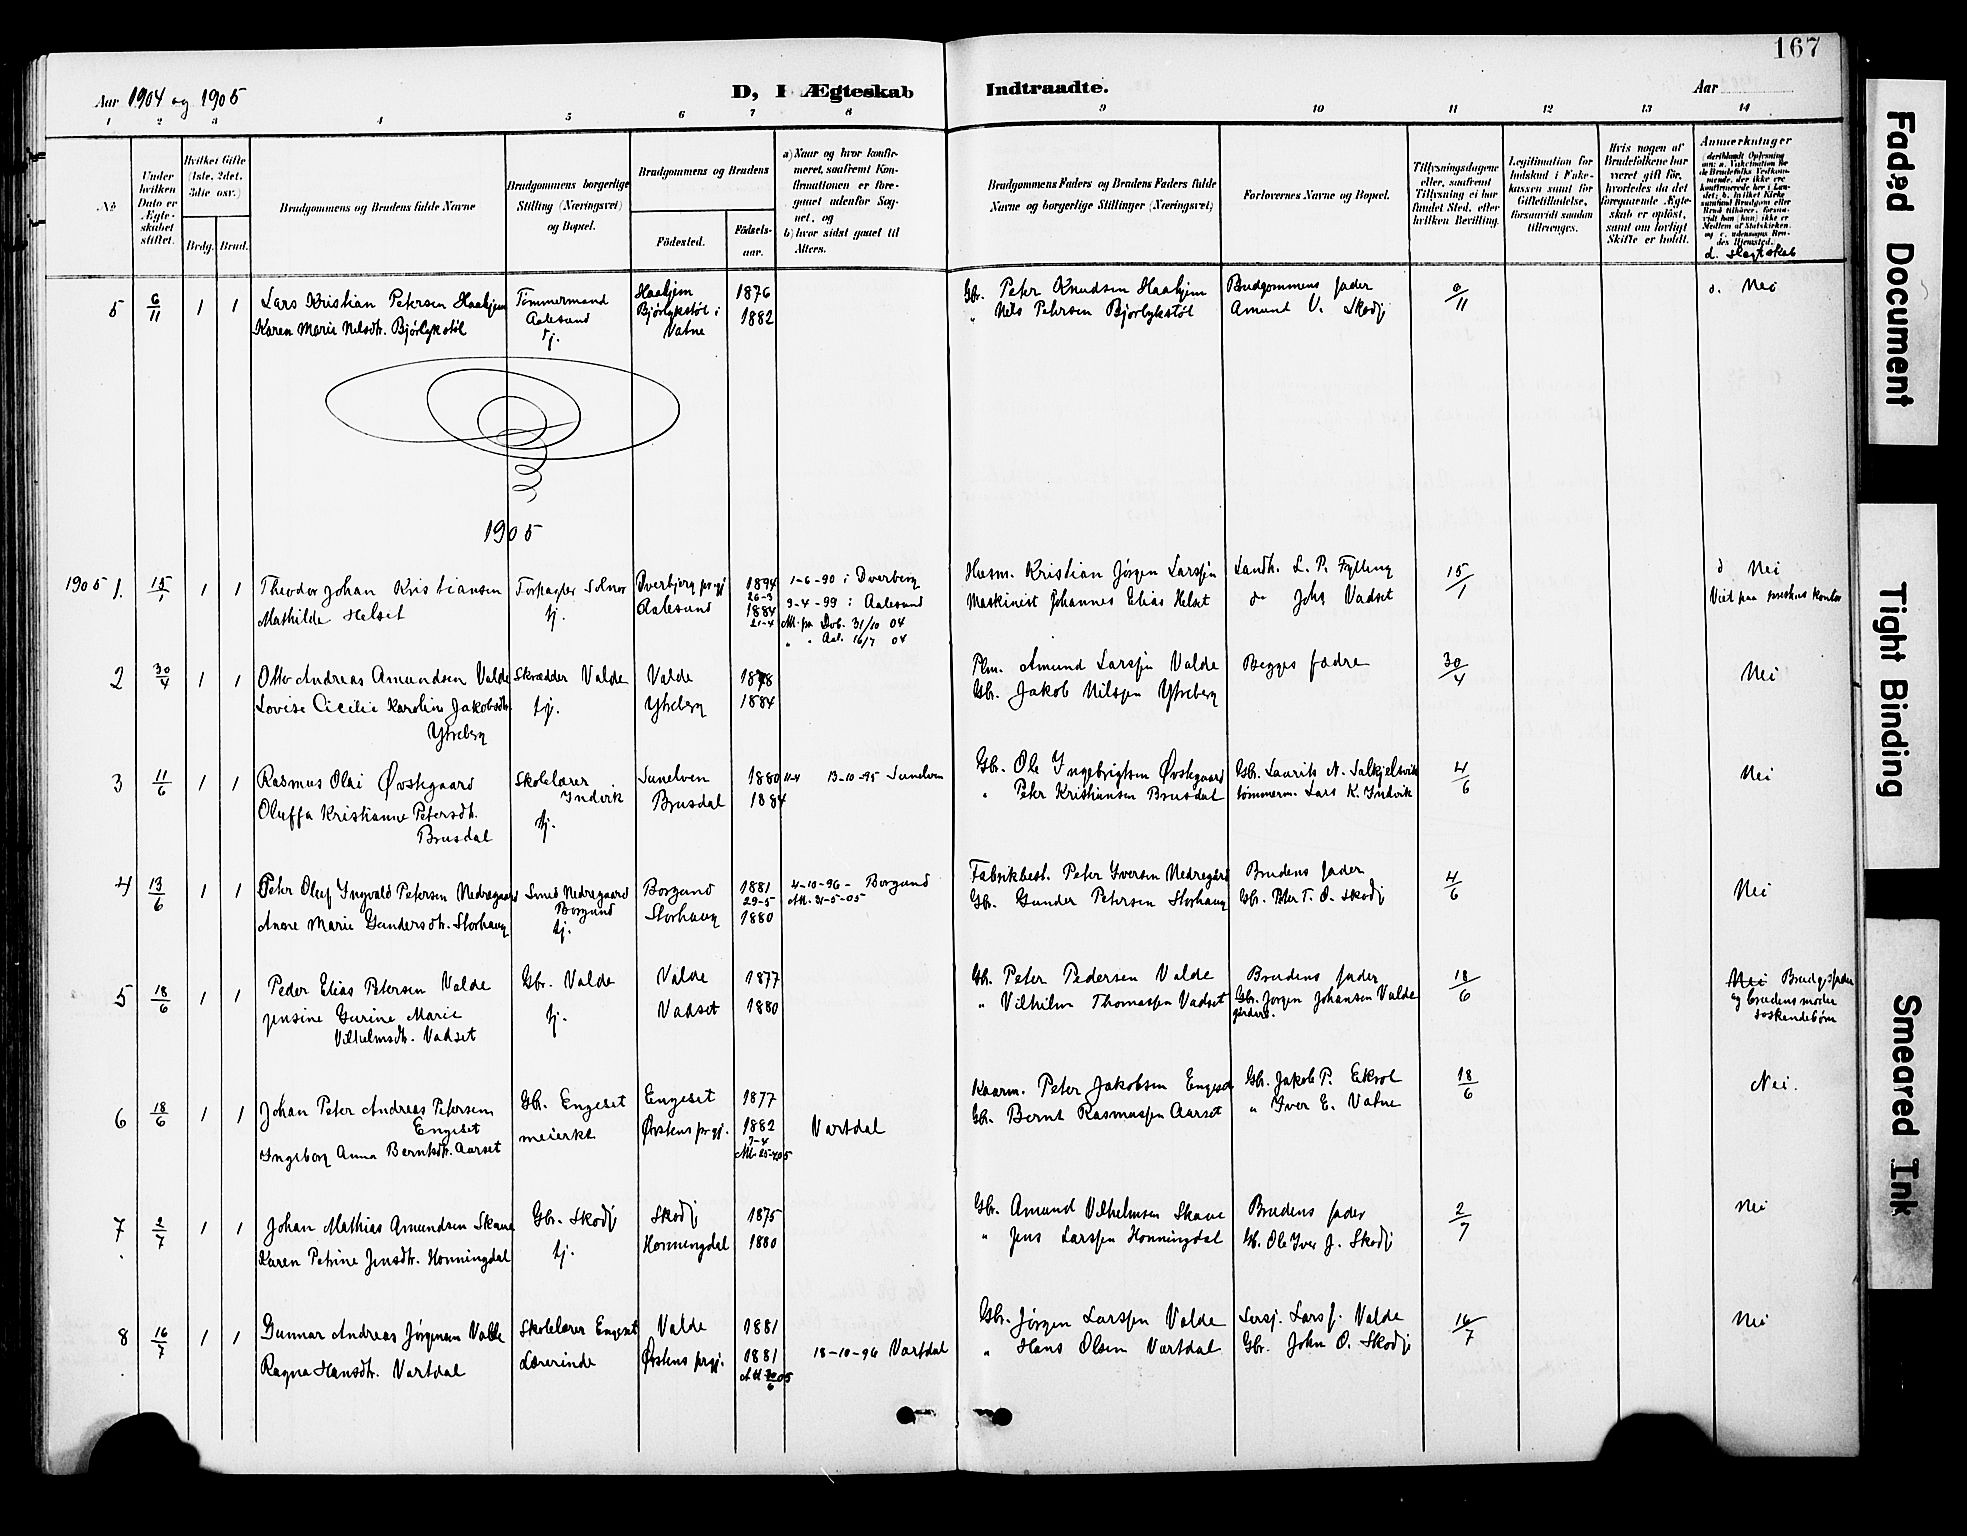 167
Aar 1904 og 1905
D, I Ægteskab Indtraadte.
Aar
1 2 3 4 5 6 7 8 9 10 11 12 13 14
No
Under hvilken Dato er Ægteskabet stiftet.
Hvilket Gifte (1ste, 2det, 3die osv.)
Brdg. Brud.
Brudgommens og Brudens fulde Navne
Brudgommens borgerlige Stilling (Næringsvei) og Bopæl.
Brudgommens og Brudens
Födested.
Födselsaar.
a) Naar og hvor konfirmeret, saafremt Konfirmationen er foregaaet udenfor Sognet, og
b) hvor sidst gaaet til Alters.
Brudgommens Faders og Brudens Faders fulde Navne og borgerlige Stillinger (Næringsvei)
Forlovernes Navne og Bopæl.
Tillysningsdagene eller, saafremt Tillysning ei har fundet Sted, efter hvilken Bevilling.
Legitimation for Indskud i Enkekassen samt for Giftetilladelse, forsaavidt saadan tiltrænges.
Hvis nogen af Brudefolkene har været gift før, hvorledes da det foregaaende Ægteskab er opløst, samt om lovligt Skifte er holdt.
Anmerkninger
d. Slegtskab
5 6/11 1 1 Lars Kristian Petersen Haahjem Tømmermand Haahjem 1876 Gbr. Peter Knudsen Haahjem Brudgommens fader 6/11 d. Nei
Aalesund
Karen Marie Nilsdtr. Bjørlykstøl tj. Bjørlykstøl i Vatne 1882 " Nils Petersen Bjørlykstøl Amund V. Skodj
1905
1905 1. 15/1 1 1 Theodor Johan Kristiansen Forpagter Solnør Dverbjerg prgj 1894 1-6-90 i Dverberg Husm. Kristian Jørgen Larssen Landh. L. P. Fylling 15/1 d Nei
26-3
Mathilde Helset tj. Aalesund 1884 9-4-99 i Aalesund Maskinist Johannes Elias Helset do Johs Vadset Viet paa prestens kontor
21-4 Att. fra Dvb. 31/10 04
" " Aal. 16/7 04
2 30/4 1 1 Otto Andreas Amundsen Valde Skrædder Valde Valde 1878 Plm. Amund Larssen Valde Begges fædre 30/4 Nei
Lovise Cicilie Karoline Jakobsdtr. Ytreberg tj. Ytreberg 1884 Gbr. Jakob Nilssen Ytreberg
3 11/6 1 1 Rasmus Olai Øvstegaard Skolelærer Indvik Sunelven 1880 11-4 13-10-95 Sunelven Gbr. Ole Ingebrigtsen Øvstegaard Gbr. Laurits N. Salkjelsvik 4/6 Nei
Oluffa Kristianne Petersdtr. Brusdal tj. Brusdal 1884 " Peter Kristiansen Brusdal tømmerm. Lars K. Indvik
4 13/6 1 1 Peter Oluf Ingvald Petersen Nedregaard Smed Nedregaard Borgund Borgund 1881 4-10-96 - Borgund Fabrikbest. Peter Iversen Nedregård Brudens fader 4/6 Nei
29-5 Att. 31-5-05
Anne Marie Gundersdtr. Storhaug tj. Storhaug 1880 Gbr. Gunder Petersen Storhaug Gbr. Peter T. O. Skodj
5 18/6 1 1 Peder Elias Petersen Valde Gbr. Valde Valde 1877 Gbr. Peter Pedersen Valde Brudens fader 18/6 Nei Brudgs fader
Jensine Gurine Marie Vilhelmsdtr. Vadset tj. Vadset 1880 " Vilhilm Thomassen Vadset Gbr. Jørgen Johansen Valde og brudens moder søskendebørn
6 18/6 1 1 Johan Peter Andreas Petersen Engeset Gbr. Engeset Engeset 1877 Kaarm. Peter Jakobsen Engeset Gbr. Jakob P. Ekrol 18/6 Nei.
Ingeborg Anna Berntsdtr. Aarset meierke Ørstens prgj. 1882 Vartdal Gbr. Bernt Rasmussen Aarset " Iver E. Vatne
7-4
Att. 25-4 05
7 2/7 1 1 Johan Mathias Amundsen Skaue Gbr. Skodj Skodj 1875 Gbr. Amund Vilhelmsen Skaue Brudens fader 2/7 Nei
Karen Petrine Jensdtr. Honningdal tj. Honningdal 1880 " Jens Larssen Honningdal Gb. Ole Iver J. Skodj
8 16/7 1 1 Gunnar Andreas Jørgensen Valde Skolelærer Engeset Valde 1881 Gbr. Jørgen Larssen Valde Sersj. Lars J. Valde 16/7 Nei
Ragna Hansdtr. Vartdal Lærerinde Ørstens prgj. 1881 18-10-96 Vartdal " Hans Olsen Vartdal Gbr. John O. Skodje
Faded Document
Tight Binding
Smeared Ink